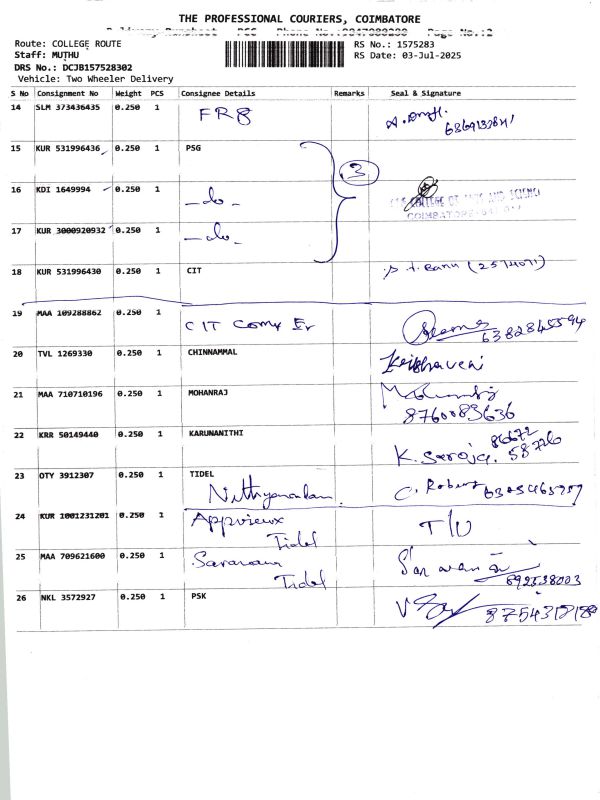 THE PROFESSIONAL COURIERS, COIMBATORE
Delivery Runsheet - PCC - Phone No.: Page No.:2
Route: COLLEGE ROUTE
RS No.: 1575283
Staff: MUTHU
RS Date: 03-Jul-2025
DRS No.: DCJB157528302
Vehicle: Two Wheeler Delivery
S No Consignment No Weight PCS Consignee Details Remarks Seal & Signature
14 SLM 373436435 0.250 1 FR8
15 KUR 531996436 0.250 1 PSG
3
16 KDI 1649994 0.250 1 -do- COLLEGE OF ARTS AND SCIENCE
COIMBATORE
17 KUR 3000920932 0.250 1 -do-
18 KUR 531996430 0.250 1 CIT Banu (2574071)
19 MAA 109288862 0.250 1 CIT
20 TVL 1269330 0.250 1 CHINNAMMAL Krishnaveni
21 MAA 710710196 0.250 1 MOHANRAJ
8760083636
22 KRR 50149440 0.250 1 KARUNANITHI K. Saroja.
23 OTY 3912307 0.250 1 TIDEL
Nithyanandam C. Robert
24 KUR 1001231201 0.250 1 Appviewx
Tidel
25 MAA 709621600 0.250 1 Saravanan Saravanan
Tidel
26 NKL 3572927 0.250 1 PSK